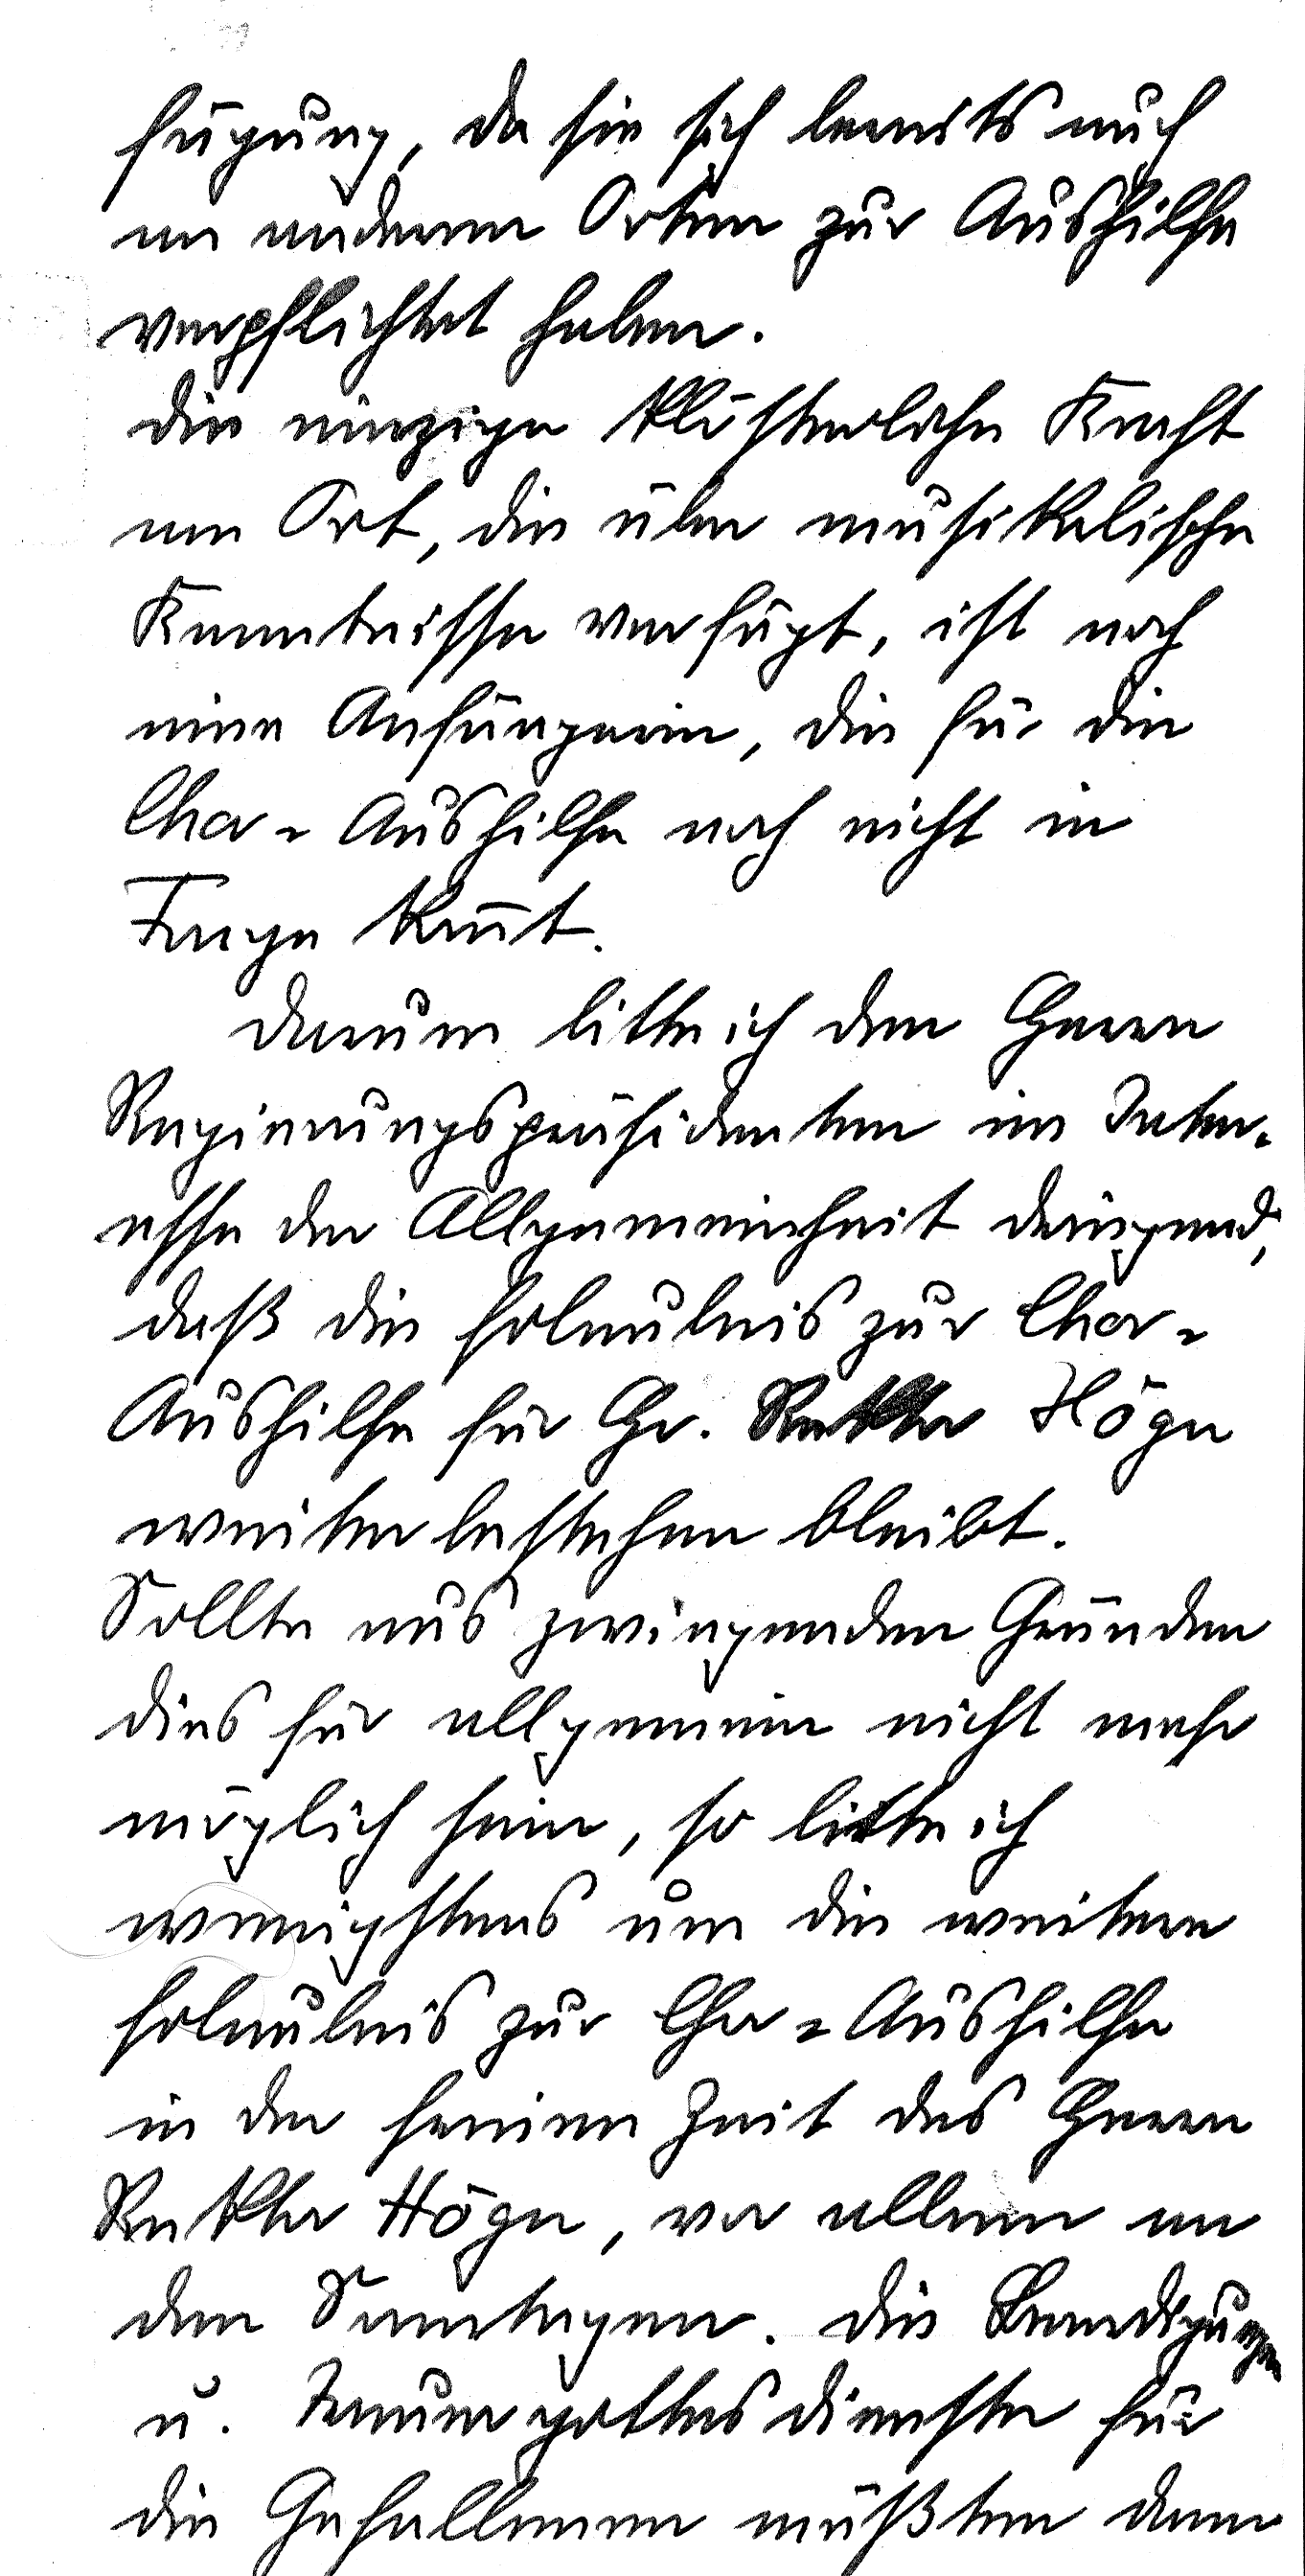 fügung, da sie sich bereits auch
an anderen Orten zur Aushilfe
verpflichtet haben.
Die einzige klösterliche Kraft
am Ort, die über musikalische
Kenntnisse verfügt, ist noch
eine Anfängerin, die für die
Chor-Aushilfe noch nicht in
Frage kommt.
Darum bitte ich den Herrn
Regierungspräsidenten im Inter-
esse der Allgemeinheit dringend,
daß die Erlaubnis zur Chor-
Aushilfe für Hr. Rektor Högn
weiter bestehen bleibt.
Sollte aus zwingenden Gründen
dies für allgemein nicht mehr
möglich sein, so bitte ich
wenigstens um die weitere
Erlaubnis zur Chor-Aushilfe
in der freien Zeit des Herrn
Rektor Högn, vor allem an
den Sonntagen. Die Beerdigungen
u. Trauergottesdienste für
die Gefallenen müßten dann